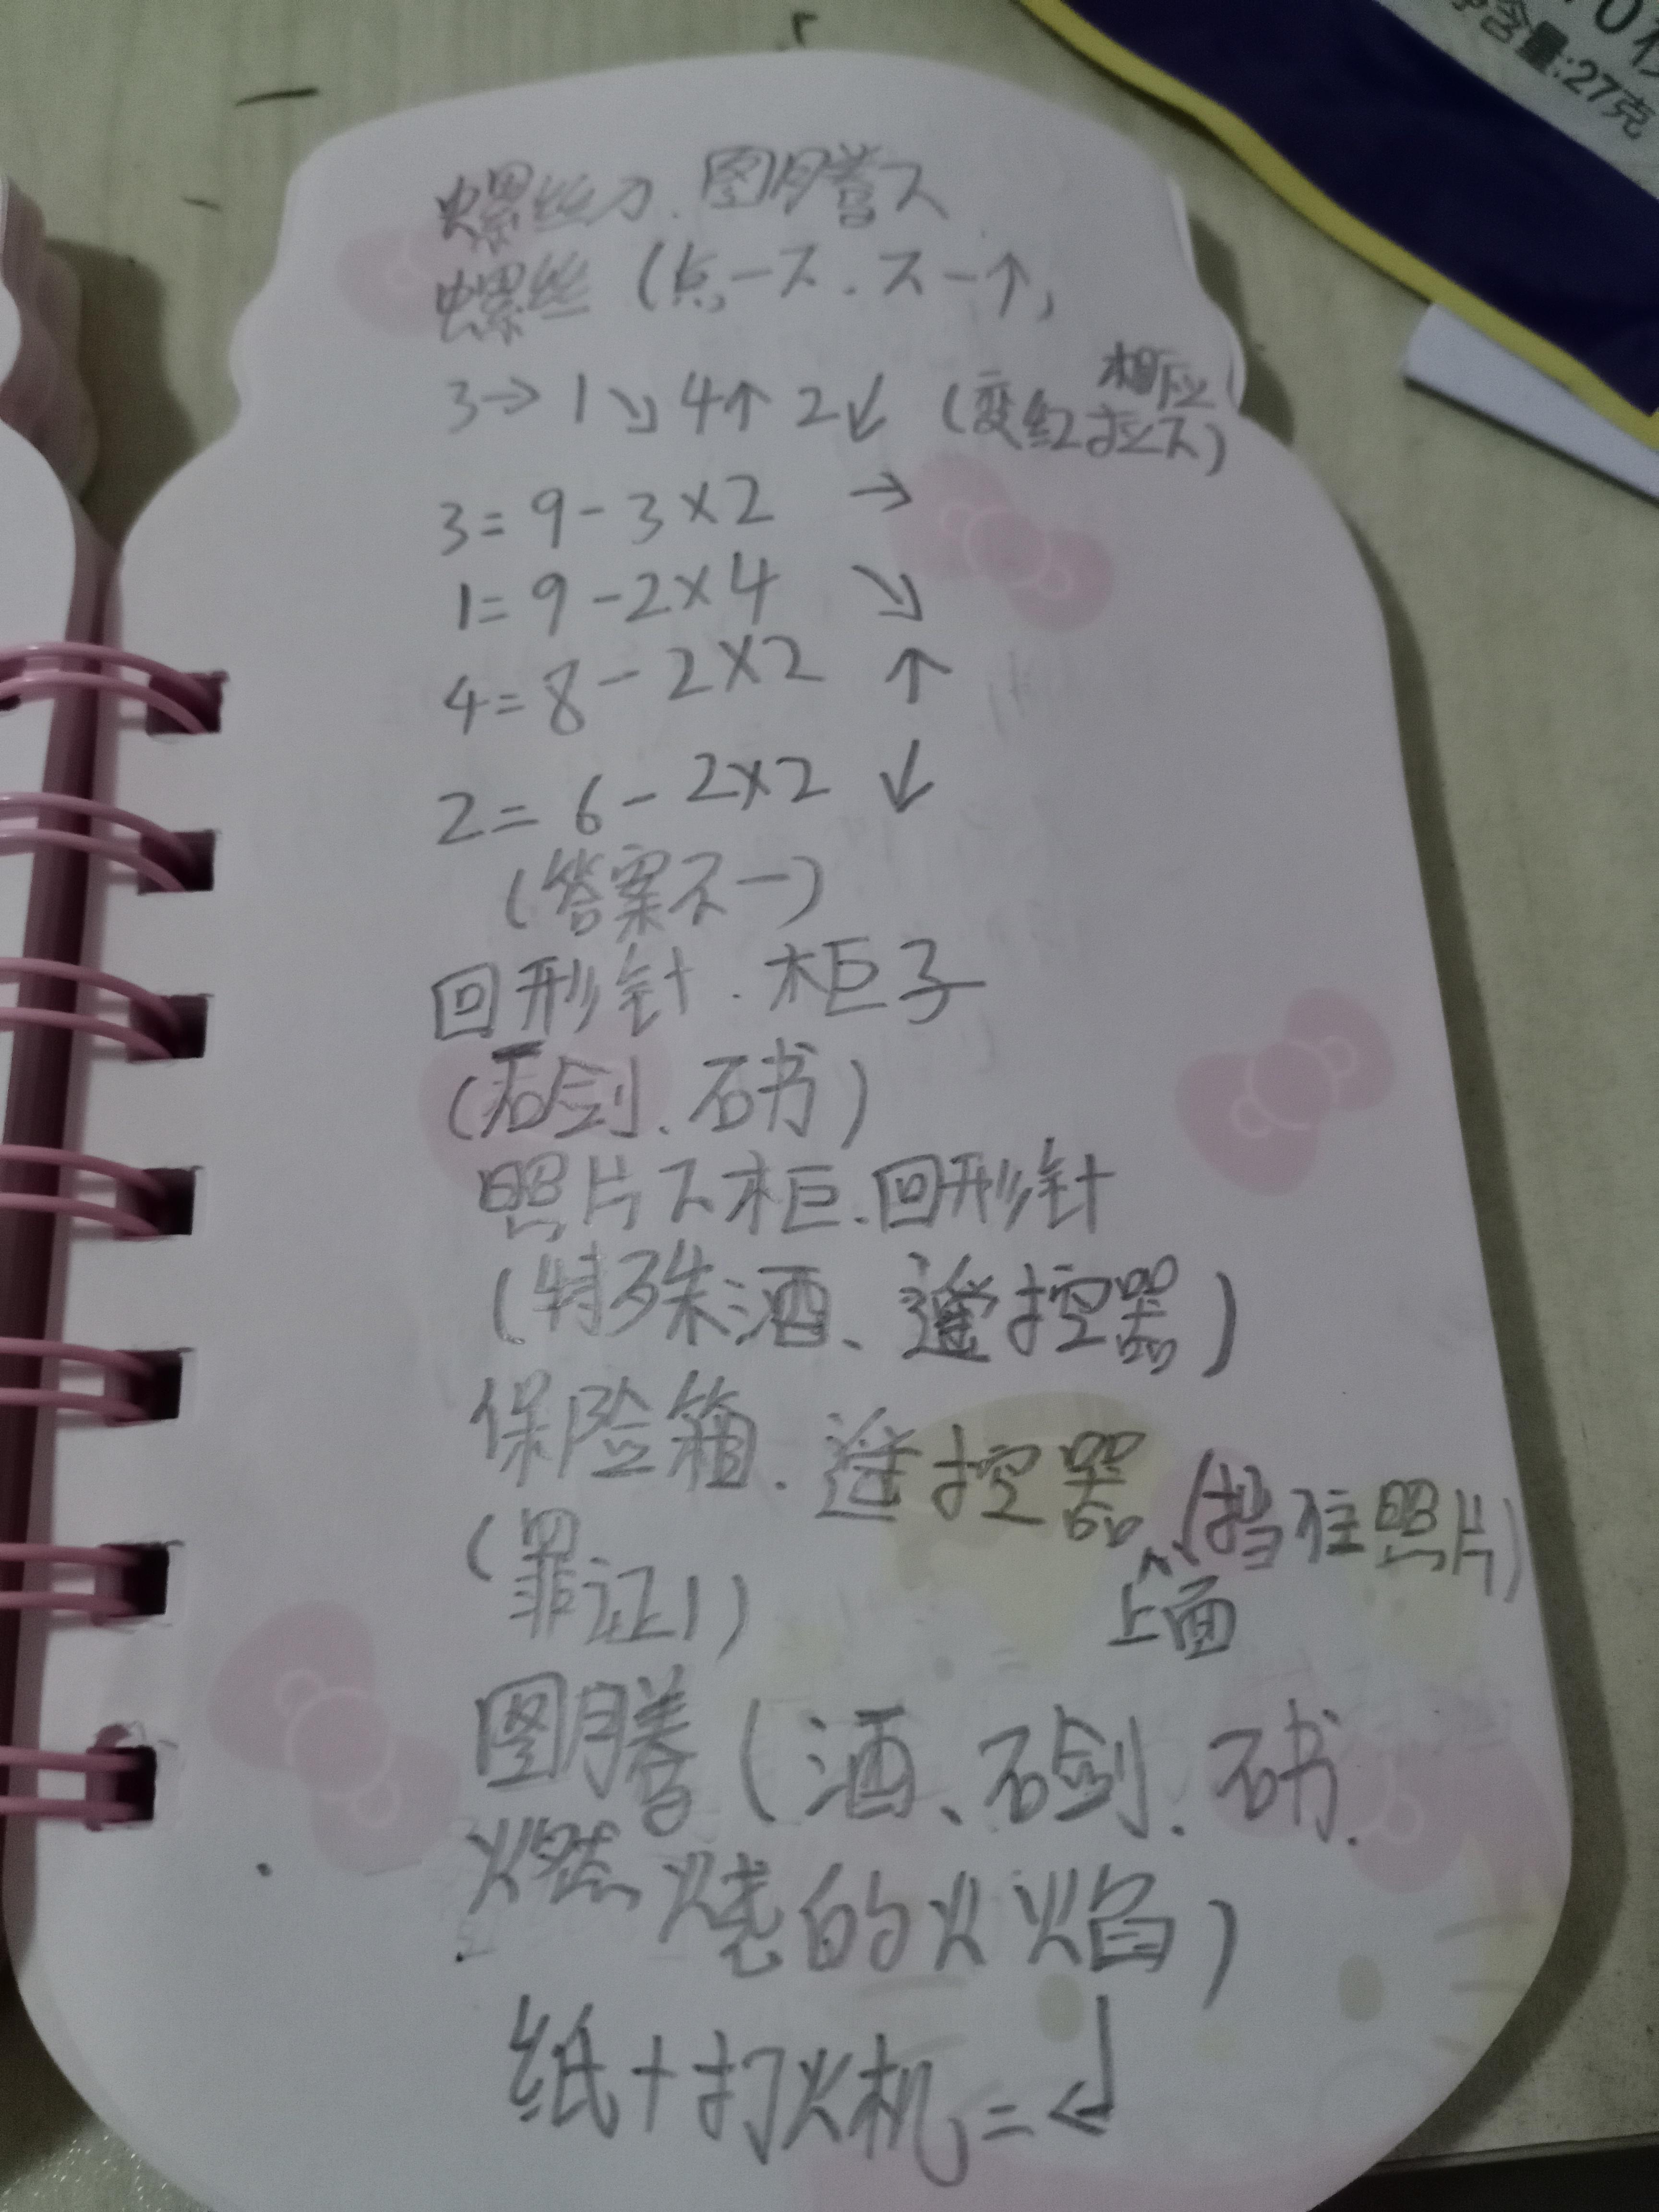 螺丝刀.图腾下
螺丝（点一下.下一个）
3→1↘4↑2↙（变红相应拉下）
3=9-3×2 →
1=9-2×4 ↘
4=8-2×2 ↑
2=6-2×2 ↙
（答案不一）
回形针.柜子
（石剑、石书）
照片下柜.回形针
（特殊酒、遥控器）
保险箱.遥控器上面（挡住照片）
（罪证1）
图腾（酒、石剑.石书.
燃烧的火焰）
纸+打火机=↲
含量:27克